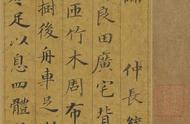 仲長統
良田廣宅背
匝竹木周布
樹後舟車足
令足以息四體